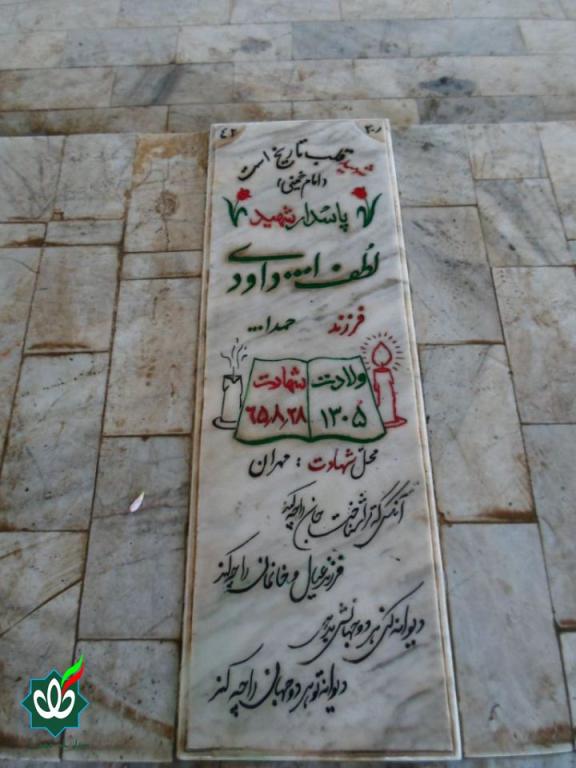 ۴۲
شهید قلب تاریخ است
(امام خمینی)
پاسدار شهید
لطف ا... داودی
فرزند حمدا...
ولادت شهادت
۱۳۰۵ ۶۵٫۸٫۲۸
محل شهادت : مهران
آنکس که ترا شناخت جان را چه کند
فرزند و عیال و خانمان را چه کند
دیوانه کنی هر دو جهانش بدهی
دیوانه تو هر دو جهان را چه کند